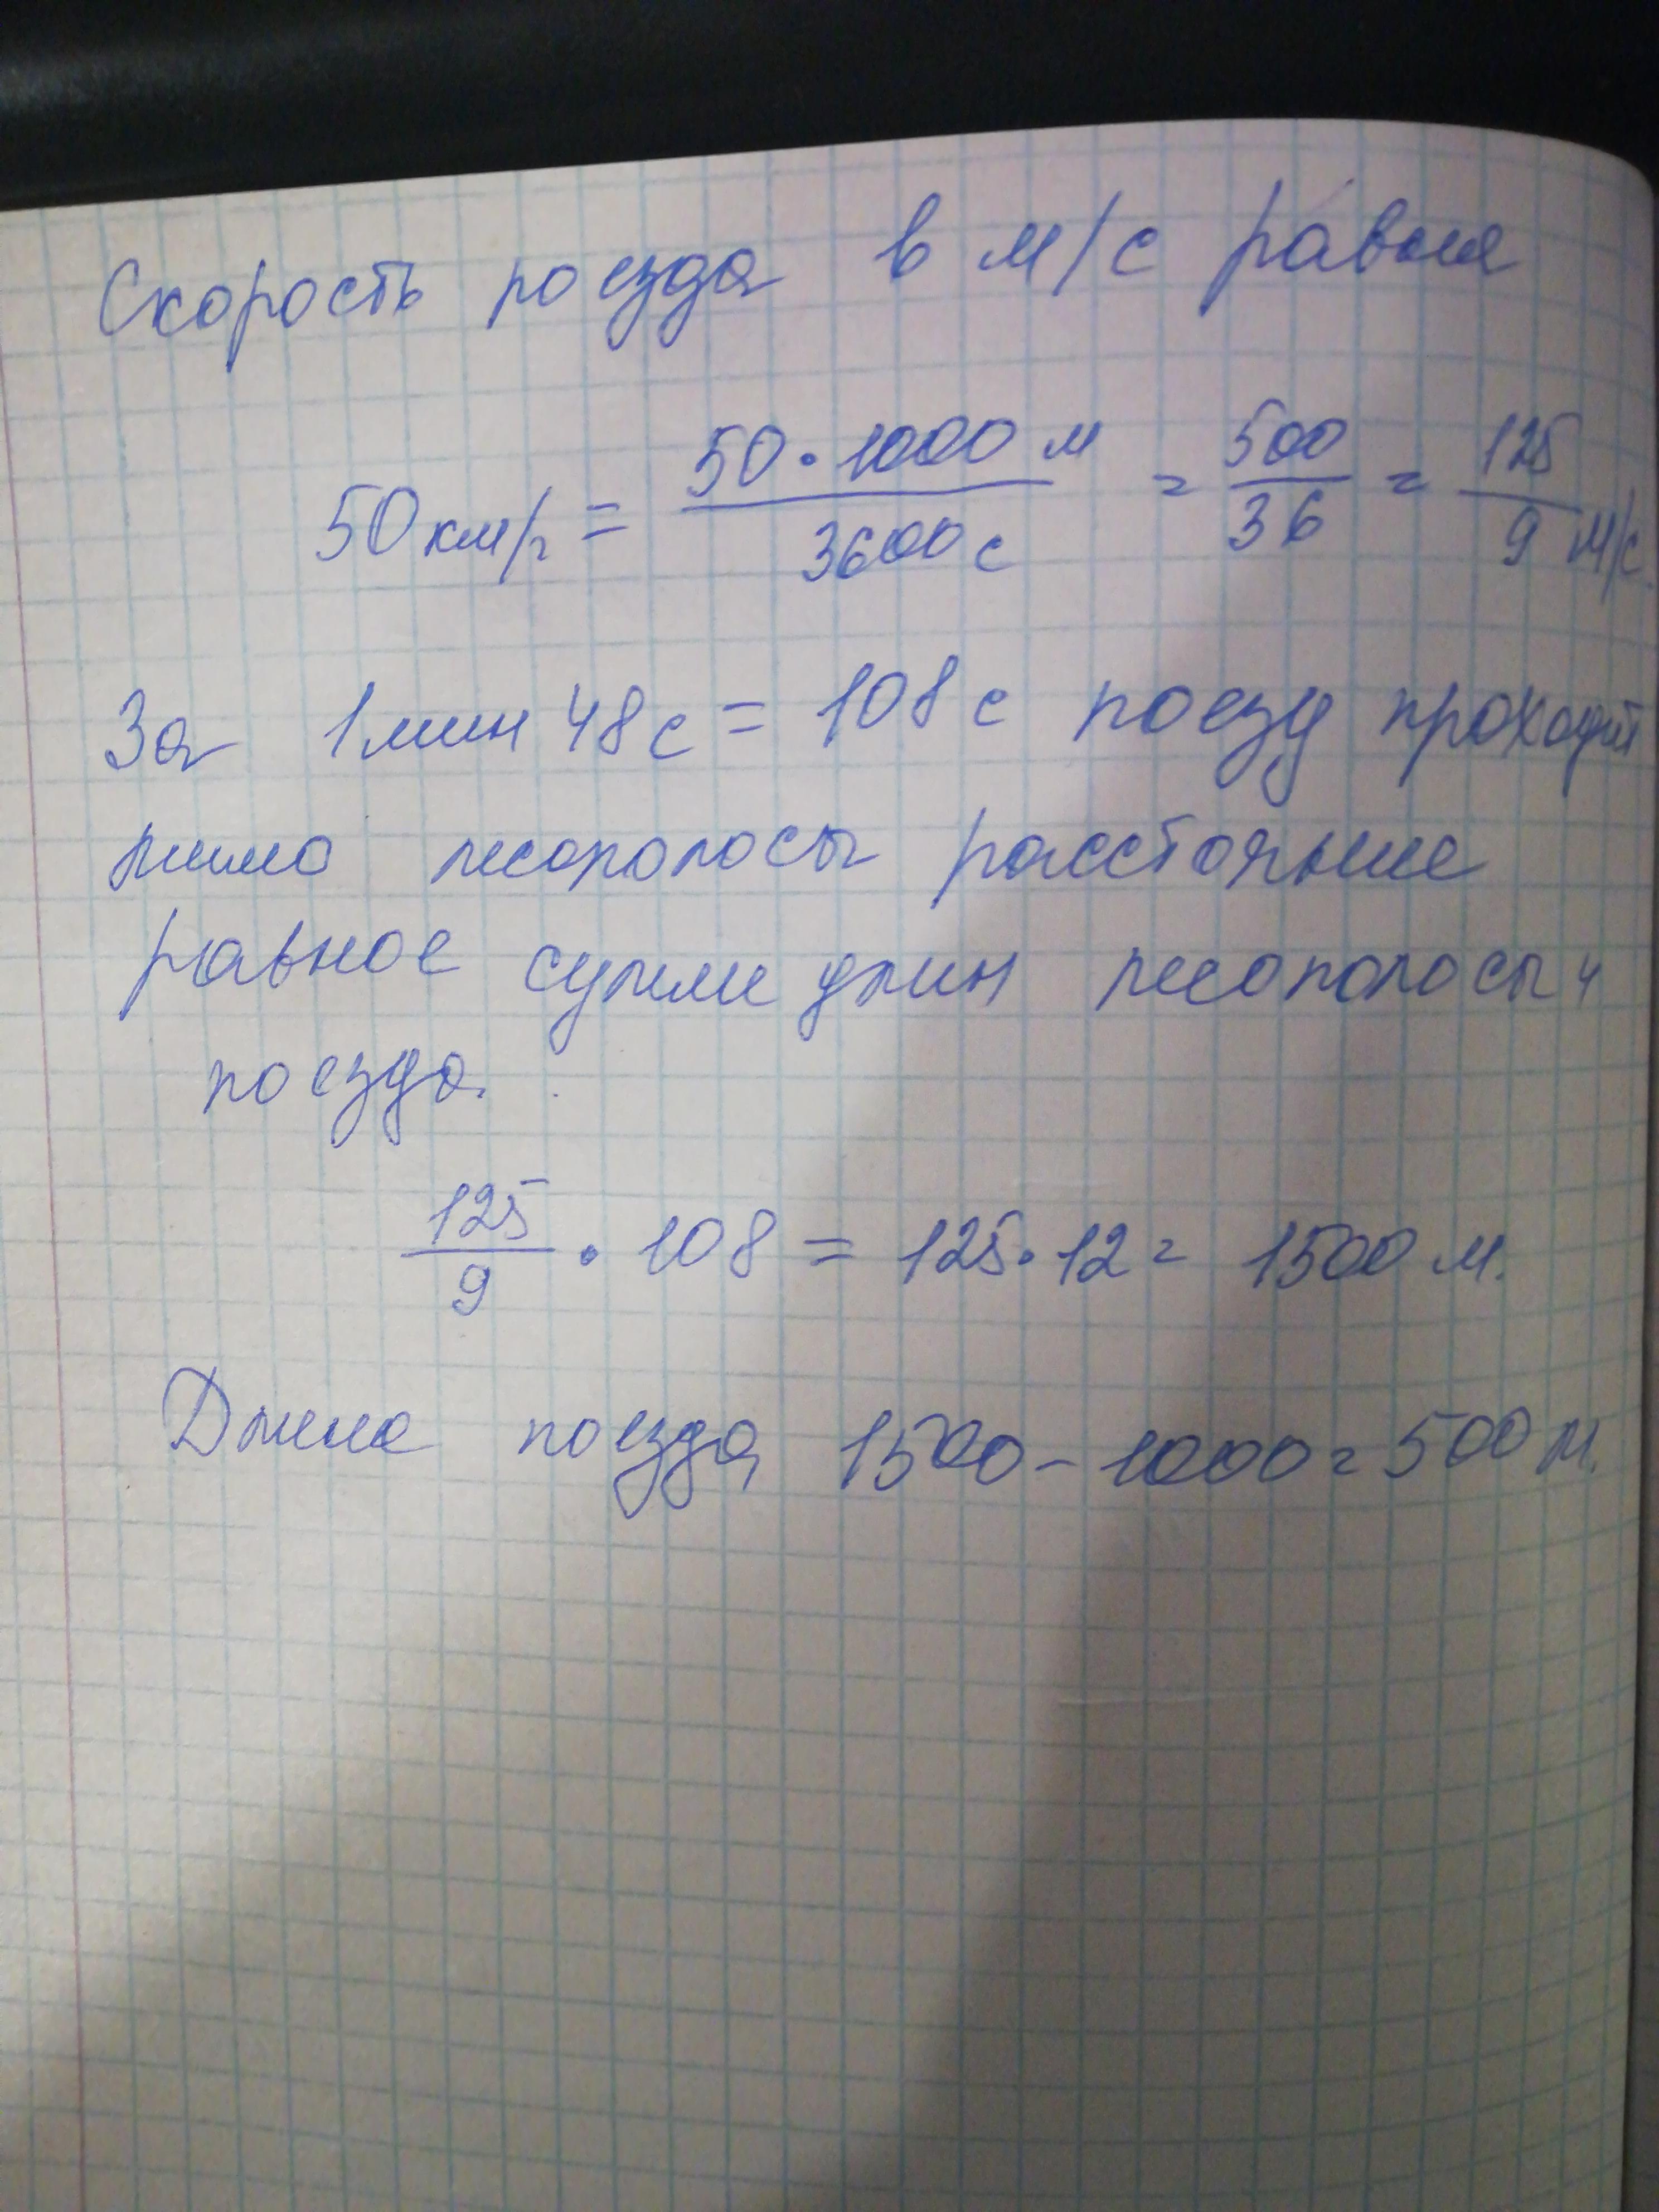 Скорость поезда в м/с равна
50 км/ч = 50 · 1000 м / 3600 с = 500/36 = 125/9 м/с.
За 1 мин 48 с = 108 с поезд проходит
мимо лесополосы расстояние
равное сумме длин лесополосы и
поезда.
125/9 · 108 = 125 · 12 = 1500 м.
Длина поезда 1500 - 1000 = 500 м.